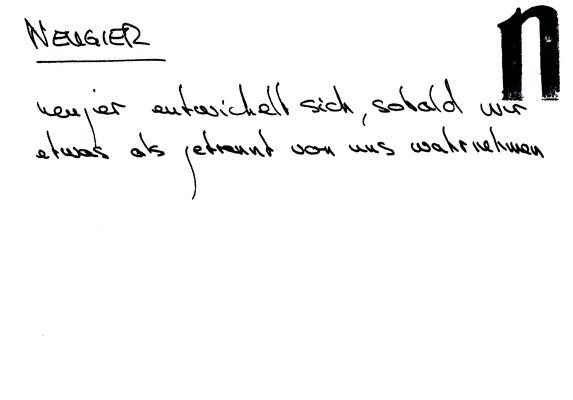 NEUGIER
n
neugier entwickelt sich, sobald wir
etwas als getrennt von uns wahrnehmen